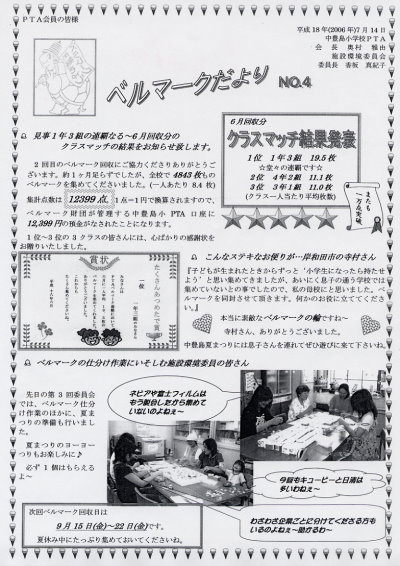 PTA会員の皆様
平成18年(2006年)7月14日
中豊島小学校PTA
会長 奥村 雅由
施設環境委員会
委員長 香坂 真紀子
ベルマークだより NO.4
見事1年3組の連覇なる~6月回収分の
クラスマッチの結果をお知らせ致します。
2回目のベルマーク回収にご協力くださりありがとうご
ざいます。約1ヶ月足らずでしたが、全校で4843枚もの
ベルマークを集めてくださいました。(一人あたり8.4枚)
集計点数は12399点。1点=1円で換算されますので、
ベルマーク財団が管理する中豊島小PTA口座に
12,399円のお金がなされたことになります。
1位~3位の3クラスの皆さんには、心ばかりの感謝状を
お贈りいたしました。
6月回収分
クラスマッチ結果発表
1位 1年3組 19.5枚
☆堂々の連覇です☆
2位 4年2組 11.1枚
3位 3年1組 11.0枚
(クラス一人当たり平均枚数)
またも
一万点突破
賞状
たくさんあつめたで賞
こんなステキなお便りが…岸和田市の寺村さん
『子どもが生まれたときからずっと「小学生になったら持たせ
よう」と思い集めてきましたが、あいにく息子の通う学校では
集めていないとの事でしたので、私の母校にと思いました。ベ
ルマークを同封させて頂きます。何かのお役に立ててくださ
い。』
本当に素敵なベルマークの輪ですね~
寺村さん、ありがとうございました。
中豊島夏まつりには息子さんを連れてぜひ遊びに来て下さいね。
ベルマークの仕分け作業にいそしむ施設環境委員の皆さん
先日の第3回委員会
では、ベルマーク仕分
け作業のほかに、夏ま
つりの準備も行いまし
た。
夏まつりのヨーヨー
つりもお楽しみに♪
必ず1個はもらえる
よ~
ネピアや富士フィルムは
もう脱会したから集めて
いないのよねぇ~
今回もキユーピーと日清は
多いわねぇ~
わざわざ企業ごとに分けてくださる方も
いるのよねぇ~助かるわ~
次回ベルマーク回収日は
9月15日(金)~22日(金)です。
夏休み中にたっぷり集めておいてくださいね。